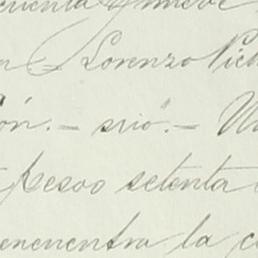 cuenta y nueve
n Lorenzo Pich
ón.- srio".- Un
Pesos setenta
encuentra la c